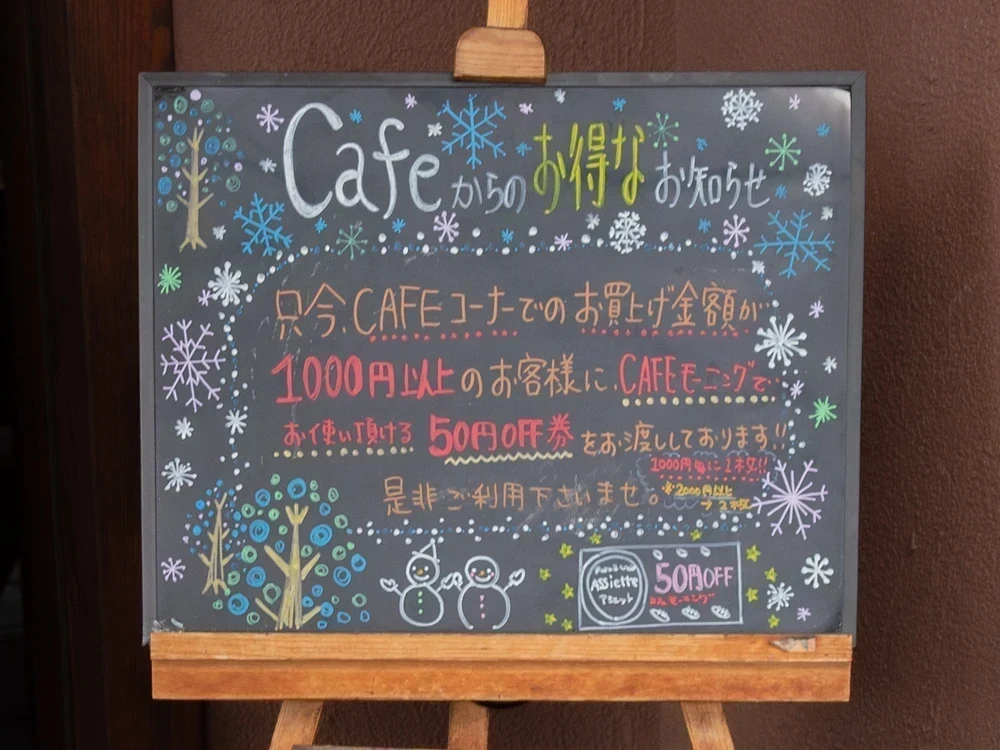 Cafeからのお得なお知らせ
只今、CAFEコーナーでのお買上げ金額が
1000円以上のお客様に、CAFEモーニングで
お使い頂ける 50円OFF券 をお渡ししております!!
1000円毎に1枚!!
是非ご利用下さいませ。
※2000円以上
→2枚
ASSiette
アシェット
50円OFF
モーニング